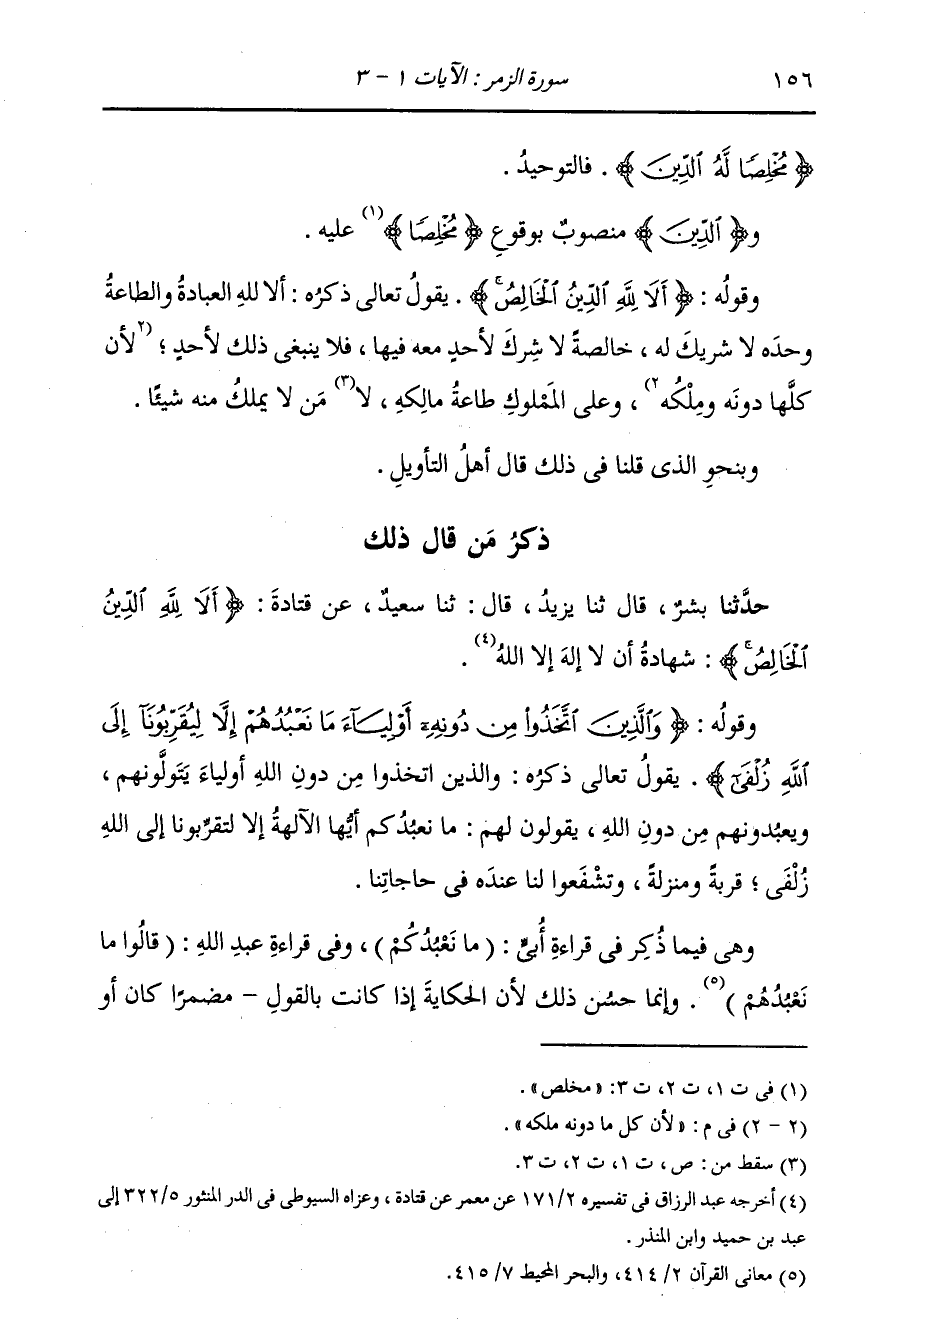 ١٥٦ سورة الزمر : الآيات ١ - ٣
﴿ مُخْلِصًا لَّهُ ٱلدِّينَ ﴾ . فالتوحيدُ .
و﴿ ٱلدِّينَ ﴾ منصوبٌ بوقوعِ ﴿ مُخْلِصًا ﴾(١) عليه .
وقولُه : ﴿ أَلَا لِلَّهِ ٱلدِّينُ ٱلْخَالِصُۚ ﴾ . يقولُ تعالى ذكرُه : ألا للهِ العبادةُ والطاعةُ
وحدَه لا شريكَ له ، خالصةً لا شِركَ لأحدٍ معه فيها ، فلا ينبغى ذلك لأحدٍ ؛ (٢لأن
كلَّها دونَه ومِلْكُه٢) ، وعلى المَمْلوكِ طاعةُ مالِكِهِ ، لا(٣) مَن لا يملكُ منه شيئًا .
وبنحوِ الذى قلنا فى ذلك قال أهلُ التأويلِ .
ذكرُ مَن قال ذلك
حدَّثنا بشرٌ ، قال ثنا يزيدُ ، قال : ثنا سعيدٌ ، عن قتادةَ : ﴿ أَلَا لِلَّهِ ٱلدِّينُ
ٱلْخَالِصُۚ ﴾ : شهادةُ أن لا إلهَ إلا اللهُ(٤) .
وقولُه : ﴿ وَٱلَّذِينَ ٱتَّخَذُوا۟ مِن دُونِهِۦٓ أَوْلِيَآءَ مَا نَعْبُدُهُمْ إِلَّا لِيُقَرِّبُونَآ إِلَى
ٱللَّهِ زُلْفَىٰٓ ﴾ . يقولُ تعالى ذكرُه : والذين اتخذوا مِن دونِ اللهِ أولياءَ يَتَولَّونهم ،
ويعبُدونهم مِن دونِ اللهِ ، يقولون لهم : ما نعبُدُكم أيُّها الآلهةُ إلا لتقرِّبونا إلى اللهِ
زُلْفَى ؛ قربةً ومنزلةً ، وتشْفَعوا لنا عندَه فى حاجاتِنا .
وهى فيما ذُكِر فى قراءةِ أُبىٍّ : ( ما نَعْبُدُكُمْ ) ، وفى قراءةِ عبدِ اللهِ : ( قالُوا ما
نَعْبُدُهُمْ )(٥) . وإنما حسُن ذلك لأن الحكايةَ إذا كانت بالقولِ - مضمرًا كان أو
(١) فى ت ١، ت ٢، ت ٣: «مخلص» .
(٢ - ٢) فى م : «لأن كل ما دونه ملكه» .
(٣) سقط من : ص ، ت ١، ت ٢، ت ٣.
(٤) أخرجه عبد الرزاق فى تفسيره ١٧١/٢ عن معمر عن قتادة ، وعزاه السيوطى فى الدر المنثور ٣٢٢/٥ إلى
عبد بن حميد وابن المنذر .
(٥) معانى القرآن ٢/ ٤١٤، والبحر المحيط ٧/ ٤١٥.